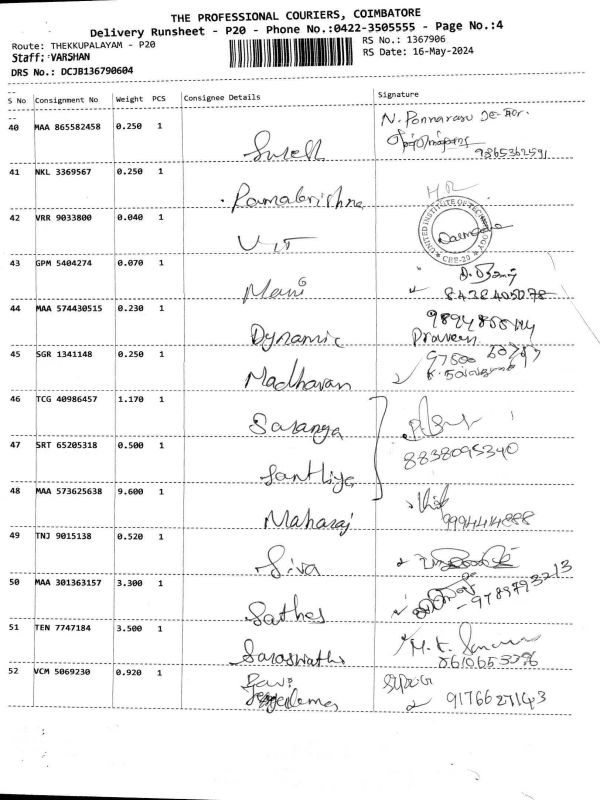 THE PROFESSIONAL COURIERS, COIMBATORE
Delivery Runsheet - P20 - Phone No.:0422-3505555 - Page No.:4
Route: THEKKUPALAYAM - P20
RS No.: 1367906
Staff: VARSHAN
RS Date: 16-May-2024
DRS No.: DCJB136790604
S No Consignment No Weight PCS Consignee Details Signature
40 MAA 865582458 0.250 1 N. Ponnarasu
9865362591
41 NKL 3369567 0.250 1 Ramakrishna HR
42 VRR 9033800 0.040 1 UIT
UNITED INSTITUTE OF TECHNOLOGY
CBE-20
43 GPM 5404274 0.070 1 Mani
8438405078
44 MAA 574430515 0.230 1 Dynamic Praveen
45 SGR 1341148 0.250 1 Madhavan
46 TCG 40986457 1.170 1 Saranya
8838095340
47 SRT 65205318 0.500 1 Santhiya
48 MAA 573625638 9.600 1 Maharaj
9994414888
49 TNJ 9015138 0.520 1 Siva
50 MAA 301363157 3.300 1 Sathes
9789793213
51 TEN 7747184 3.500 1 Saraswathi M.K.
52 VCM 5069230 0.920 1